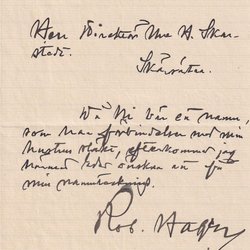 Herr Direktör Uno A. Skar-
stedt.
Skärsätra.
Då Ni bär ett namn,
som har förbindelse med min
hustrus släkt, efterkommer jag
härmed Eder önskan att få
min namnteckning.
Rob. Hager